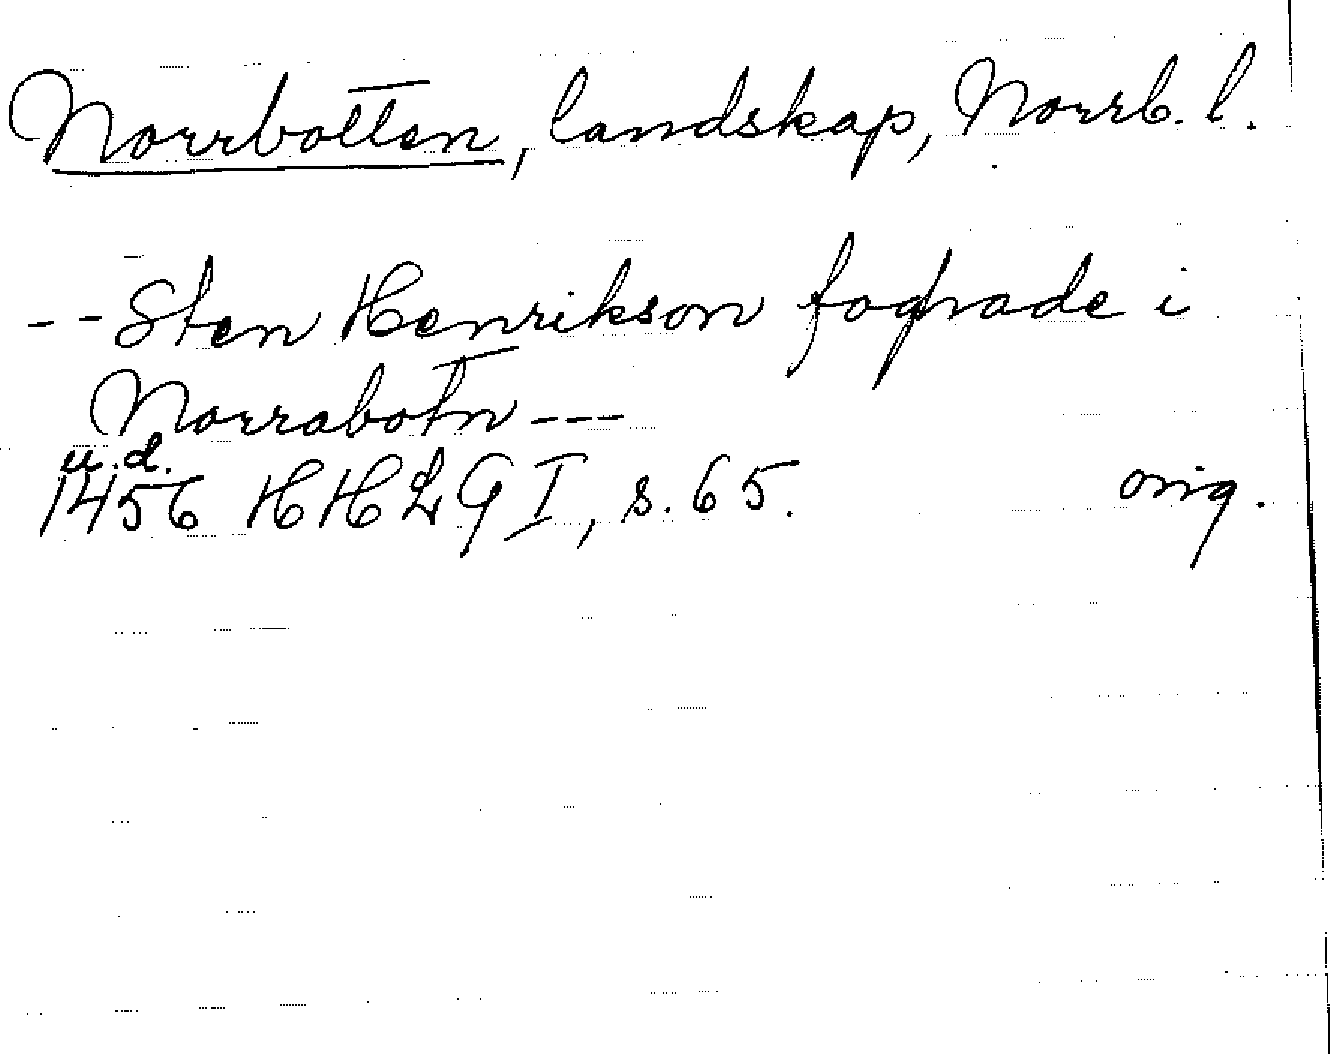 Norrbotten, landskap, Norrb. l.
--Sten Henrikson foghade i
Norrabotn---
u.d.
1456 HHLG I, s. 65. orig.